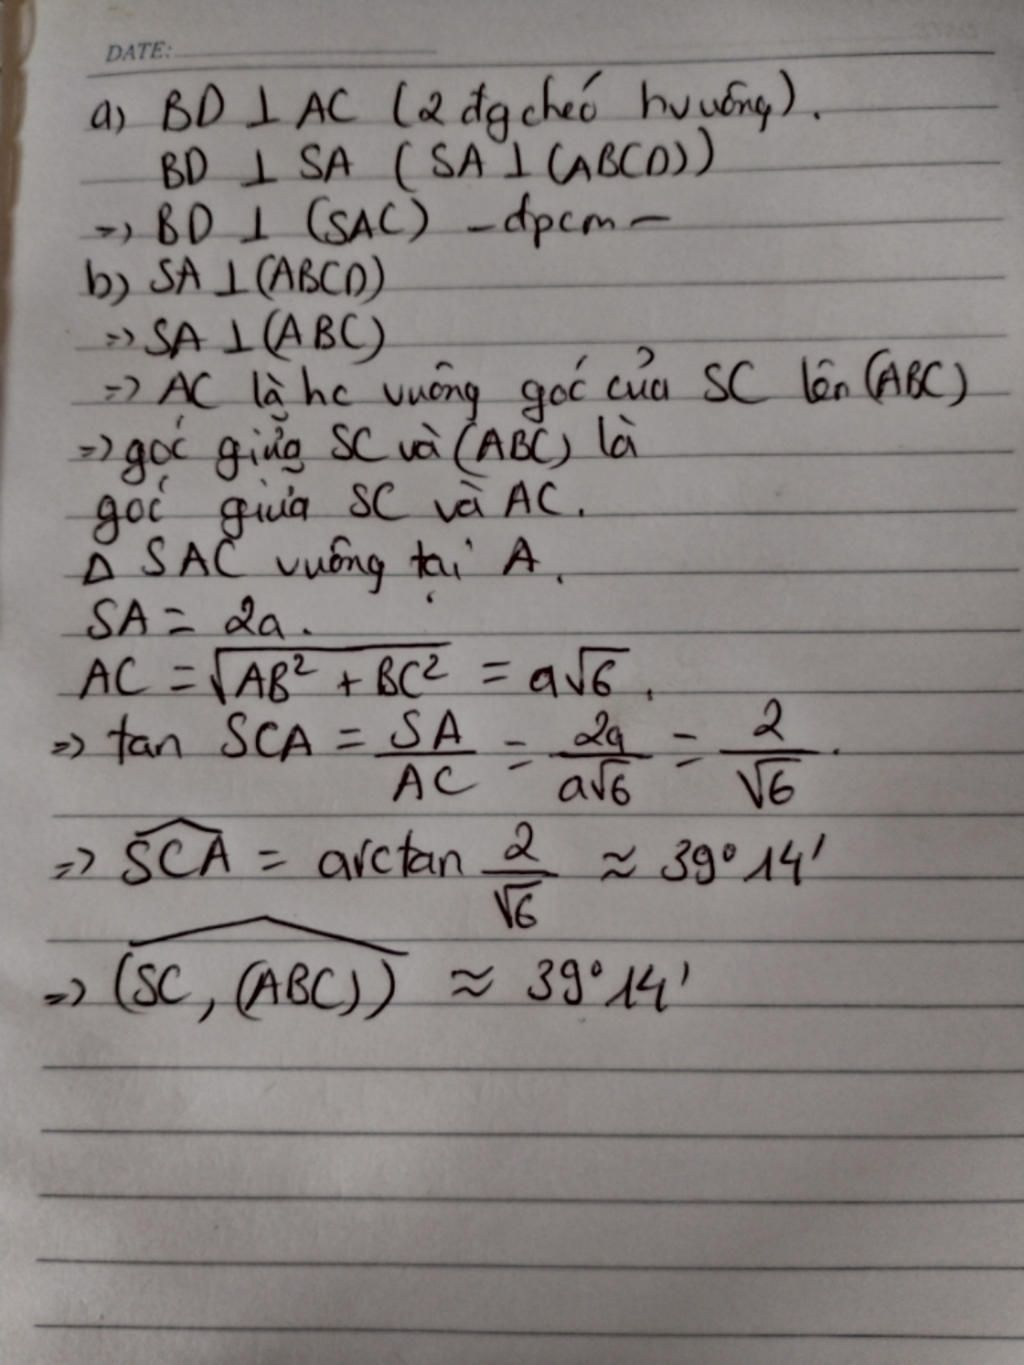 DATE:
a) BD ⊥ AC (2 đg chéo hvuông).
BD ⊥ SA (SA ⊥ (ABCD))
=> BD ⊥ (SAC) -đpcm-
b) SA ⊥ (ABCD)
=> SA ⊥ (ABC)
=> AC là hc vuông góc của SC lên (ABC)
=> góc giữa SC và (ABC) là
góc giữa SC và AC.
Δ SAC vuông tại A.
SA = 2a.
AC = √(AB² + BC²) = a√6.
=> tan SCA = SA/AC = 2a/a√6 = 2/√6.
=> \widehat{SCA} = arctan 2/√6 ≈ 39°14'
=> \widehat{(SC, (ABC))} ≈ 39°14'